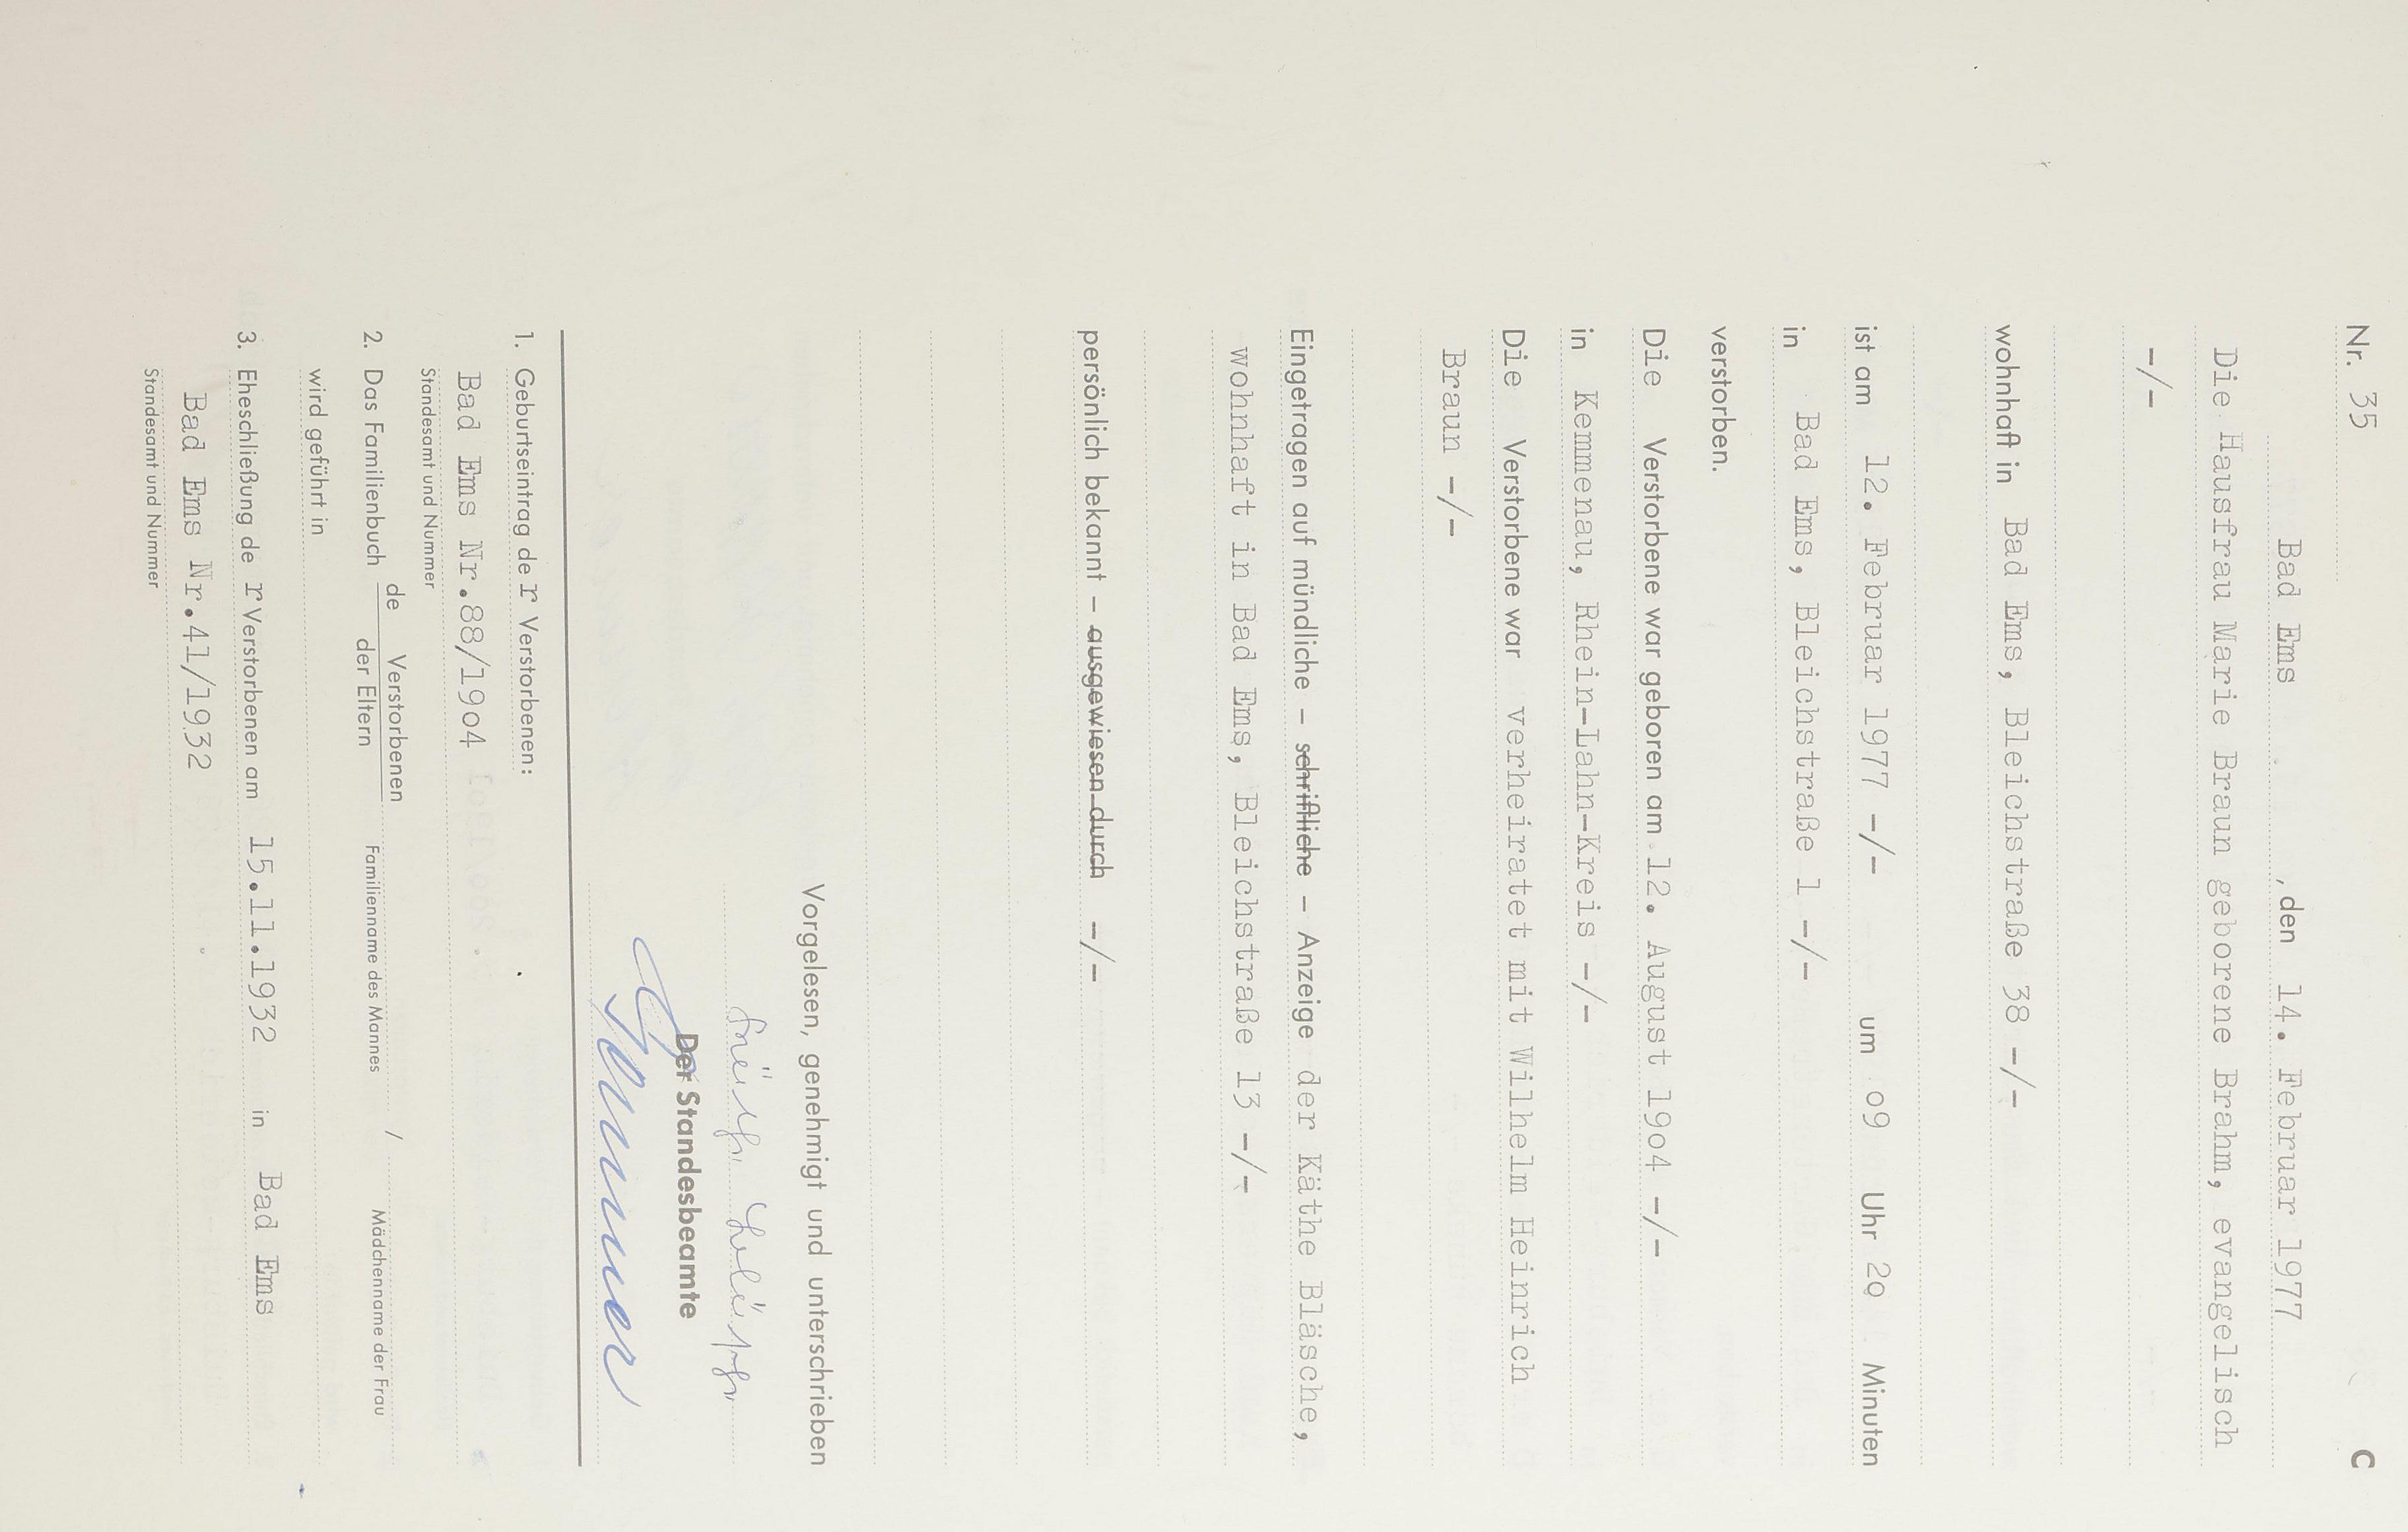 Nr. 35 C
Bad Ems , den 14. Februar 1977
Die Hausfrau Marie Braun geborene Brahm, evangelisch
-/-
wohnhaft in Bad Ems, Bleichstraße 38 -/-
ist am 12. Februar 1977 -/- um 09 Uhr 29 Minuten
in Bad Ems, Bleichstraße 1 -/-
verstorben.
Die Verstorbene war geboren am 12. August 1904 -/-
in Kemmenau, Rhein-Lahn-Kreis -/-
Die Verstorbene war verheiratet mit Wilhelm Heinrich
Braun -/-
Eingetragen auf mündliche – schriftliche – Anzeige der Käthe Bläsche,
wohnhaft in Bad Ems, Bleichstraße 13 -/-
persönlich bekannt – ausgewiesen durch -/-
Vorgelesen, genehmigt und unterschrieben
Der Standesbeamte
1. Geburtseintrag de r Verstorbenen:
Bad Ems Nr.88/1904
Standesamt und Nummer
2. Das Familienbuch de Verstorbenen
der Eltern
Familienname des Mannes / Mädchenname der Frau
wird geführt in
3. Eheschließung de r Verstorbenen am 15.11.1932 in Bad Ems
Bad Ems Nr.41/1932
Standesamt und Nummer